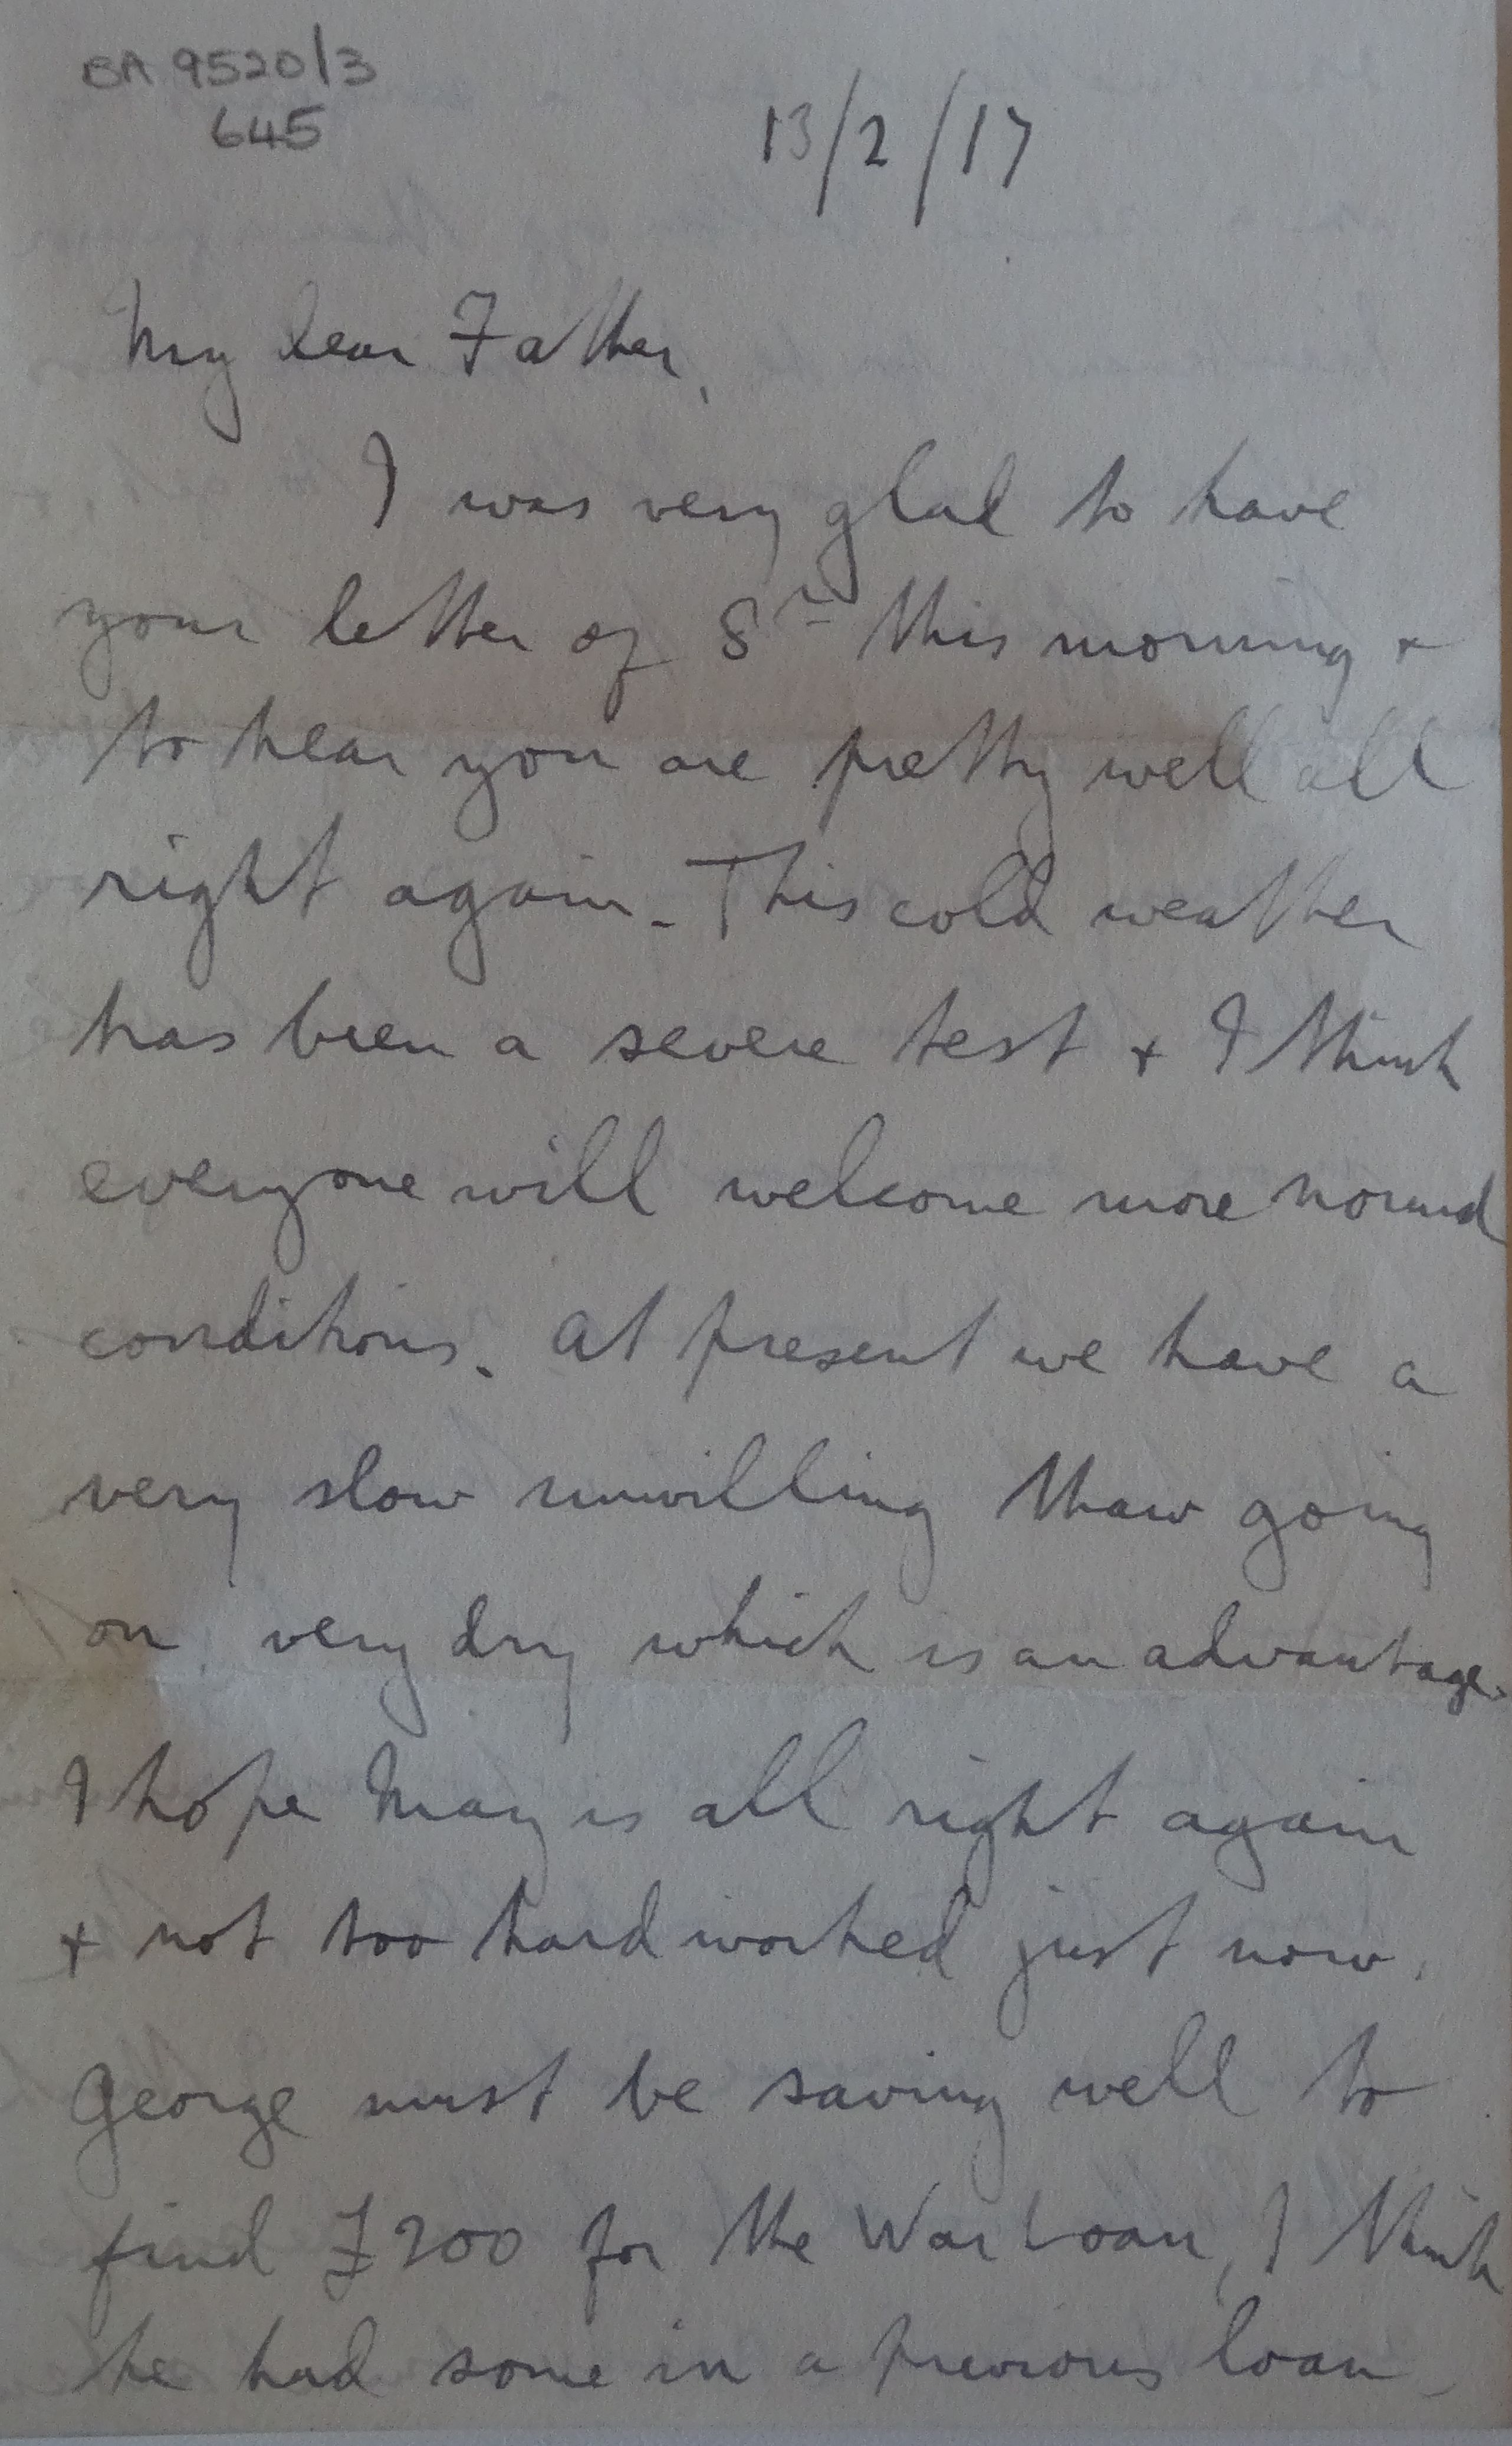 BA 9520/3
645
13/2/17
My dear Father,
I was very glad to have
your letter of 8th this morning +
to hear you are pretty well all
right again. This cold weather
has been a severe test + I think
everyone will welcome more normal
conditions. At present we have a
very slow unwilling thaw going
on, very dry which is an advantage.
I hope May is all right again
+ not too hard worked just now.
George must be saving well to
find £200 for the War Loan, I think
he had some in a previous loan.